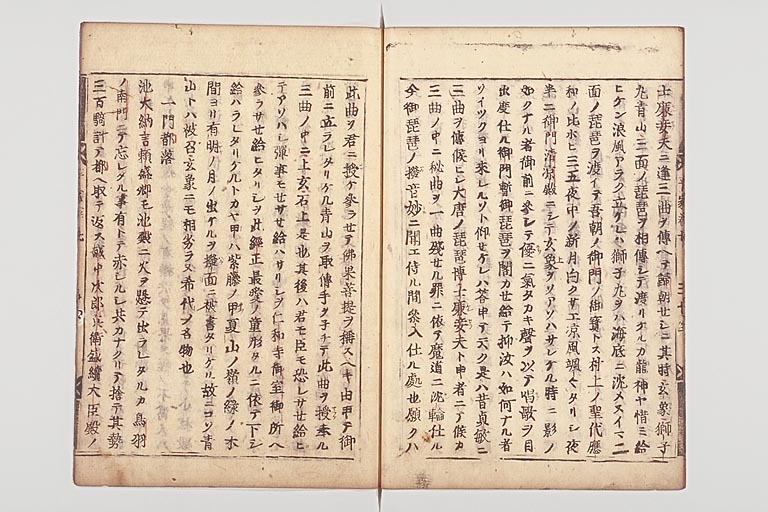 士廉妾夫ニ逢三曲ヲ傳ヘテ歸朝セシニ其時玄象獅子
丸青山三面ノ琵琶ヲ相傳シテ渡リケルカ龍神ヤ惜ミ給
ヒケン浪風アラク立ケレハ獅子丸ヲハ海底ニ沈メヌ今二
面ノ琵琶ヲ渡イテ吾朝ノ御門ノ御寳トス村上ノ聖代應
和ノ比ホヒ三五夜中ノ新月白クサエ凉風颯々タリシ夜
半ニ御門清凉殿ニシテ玄象ヲソアソハサレケル時ニ影ノ
如クナル者御前ニ參シテ優ニ氣タカキ聲ヲ以テ唱歌ヲ目
出度仕ル御門暫御琵琶ヲ閣カセ給テ抑汝ハ如何ナル者
ソイツクヨリ來レルソト仰セケレハ答申テ云ク是ハ昔貞敏ニ
三曲ヲ傳候ヒシ大唐ノ琵琶博士廉妾夫ト申者ニテ候カ
三曲ノ中ニ秘曲ヲ一曲殘セル罪ニ依テ魔道ニ沈輪仕ル
今御琵琶ノ撥音妙ニ聞エ侍ル間參入仕ル處也願クハ
此曲ヲ君ニ授ケ參ラセテ佛果菩提ヲ稱スヘキ由申テ御
前ニ立ラレタリケル青山ヲ取傳手ヲ子チテ此曲ヲ授奉ル
三曲ノ中ニ上玄石上是也其後ハ君モ臣モ恐レサセ給ヒ
テアソハシ彈事モセサセ給ハサリシヲ仁和寺御室御所ヘ
參ラサセ給ヒタリシヲ此經正最愛ノ童形タルニ依テ下シ
給ハラレタリケルトカヤ甲ハ紫藤ノ甲夏山ノ嶺ノ緑ノ木
間ヨリ有明ノ月ノ出ケルヲ撥面ニ被書タリケル故ニコソ青
山トハ被召玄象ニモ相劣ラヌ希代ノ名物也
一門都落
池大納言頼盛卿モ池殿ニ火ヲ懸テ出ラレタルカ鳥羽
ノ南門ニテ忘レタル事有トテ赤シルシ共カナクリテ捨テ其勢
三百騎計テ都ヘ取テ返ス越中次郎兵衛盛續大臣殿ノ